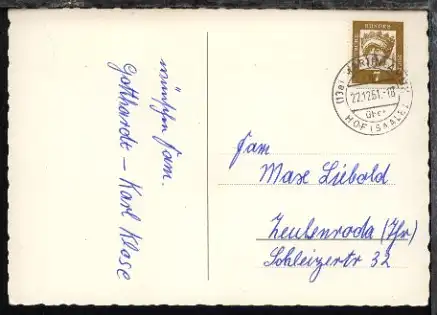 wünschen Fam.
Gotthardt - Karl Klose
7
(13a)
22.12.61.-18
über
HOF (SAALE)
Fam
Max Liebold
Zeulenroda (Thr)
Schleizerstr 32